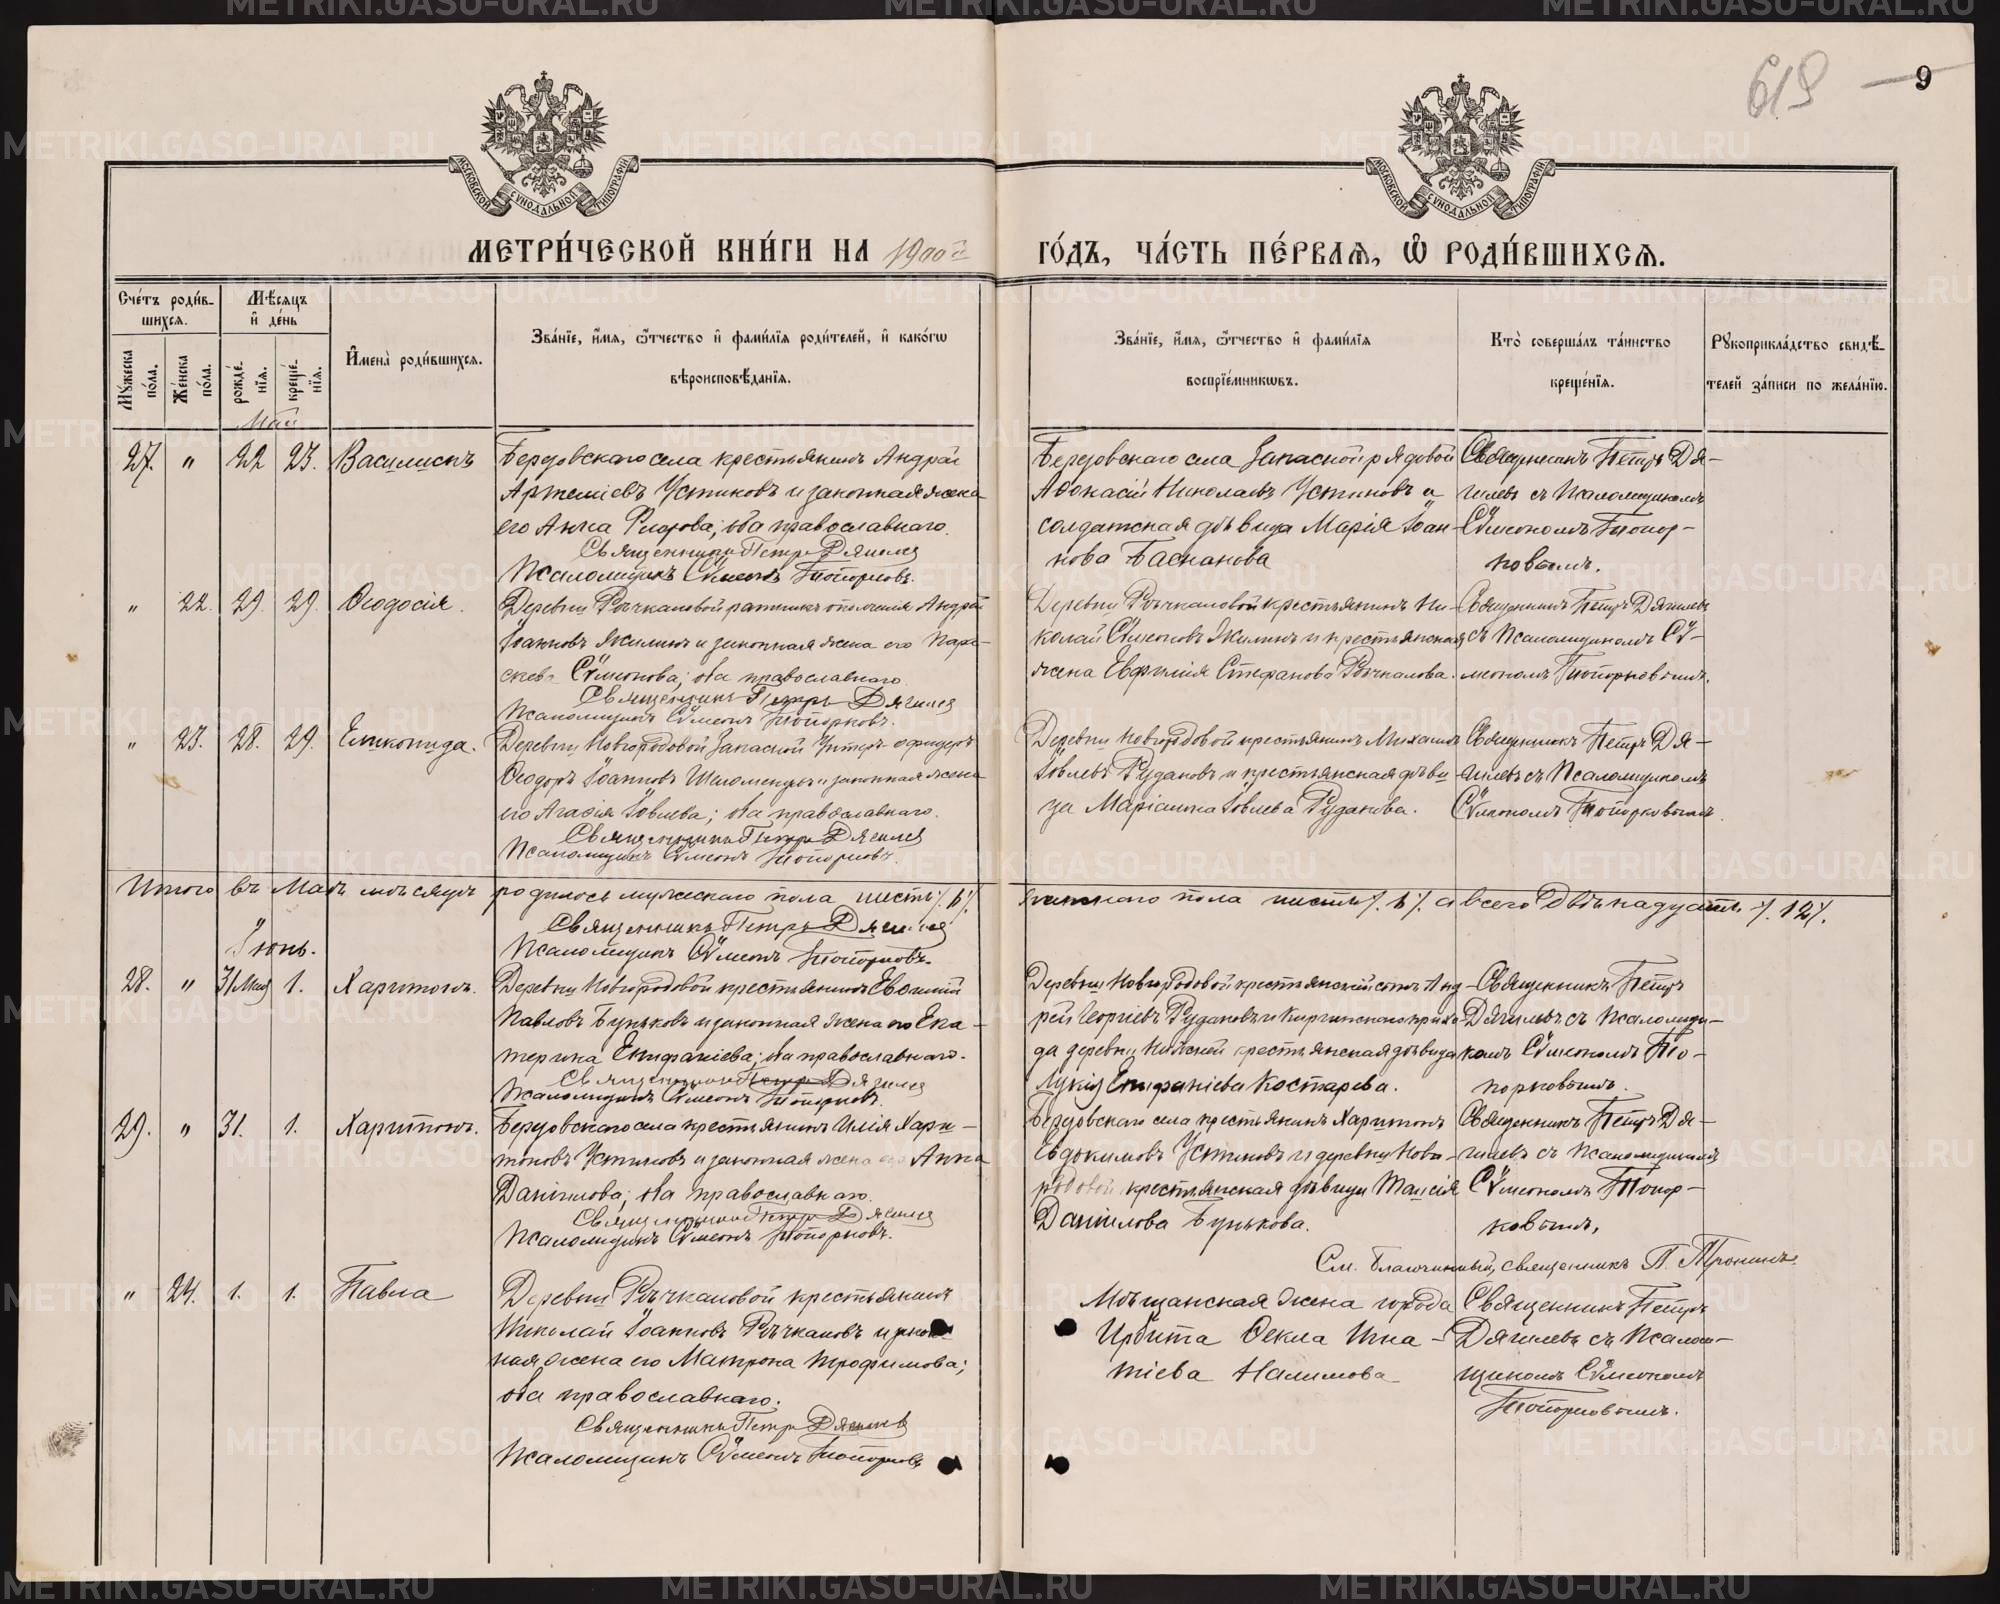 619 9
МЕТРИ́ЧЕСКОЙ КНИ́ГИ НА 1900й ГО́ДЪ, ЧА́СТЬ ПЕ́РВАЯ, Ѽ РОДИ́ВШИХСЯ.
МОСКОВСКОЙ СѴНОДАЛЬНОЙ ТИПОГРАФІИ
МОСКОВСКОЙ СѴНОДАЛЬНОЙ ТИПОГРАФІИ
Сче́тъ роди́вшихся.
Мѣ́сяцъ и҆ де́нь
Мꙋ́жеска по́ла.
Же́нска по́ла.
рожде́нїя.
креще́нїя.
И҆мена̀ роди́вшихся.
Зва́нїе, и҆́мя, ѻ҆́тчество и҆ фами́лїя роди́телей, и҆ како́гѡ
вѣроисповѣ́данїя.
Зва́нїе, и҆́мя, ѻ҆́тчество и҆ фами́лїя
воспрїе́мникѡвъ.
Кто̀ соверша́лъ та́инство
креще́нїя.
Рꙋкоприкла́дство свидѣ́-
телей за́писи по жела́нїю.
Май
27. " 22 23. Василискъ
Бердовскаго села крестьянинъ Андрей
Артемiевъ Устиновъ и законная жена
его Анна; оба православнаго.
Священникъ Петръ Дягилев
Псаломщикъ Сѵмеонъ Топорковъ.
Бердовскаго села Запасной рядовой
Аѳонасiй Николаевъ Устиновъ и
солдатская дѣвица Марiя Iоан-
нова
Священникъ Петръ Дя-
гилевъ съ Псаломщикомъ
Сѵмеономъ Топор-
ковымъ.
" 22. 29. 29. Ѳеодосiя.
Деревни Рѣчкаловой ратникъ ополченiя Андрей
Iоанновъ Жилинъ и законная жена его Пара-
скева Сѵмеонова; оба православнаго.
Священникъ Петръ Дягилев
Псаломщикъ Сѵмеонъ Топорковъ.
Деревни Рѣчкаловой крестьянинъ Ни-
колай Сѵмеоновъ Жилинъ и крестьянская
жена Евфимiя Стефанова Рѣчкалова.
Священникъ Петръ Дягилевъ
съ Псаломщикомъ Сѵ-
меономъ Топорковымъ.
" 23. 28. 29. Еликонида.
Деревни Новгородовой Запасной Унтеръ-офицеръ
Ѳеодоръ Iоанновъ Шеломенцевъ и законная жена
его Агафiя Iовлева; оба православнаго.
Священникъ Петръ Дягилев
Псаломщикъ Сѵмеонъ Топорковъ.
Деревни Новгородовой крестьянинъ Михаилъ
Iовлевъ Рудаковъ и крестьянская дѣви-
ца Марiамна Iовлева Рудакова.
Священникъ Петръ Дя-
гилевъ съ Псаломщикомъ
Сѵмеономъ Топорковымъ.
Итого въ Маѣ мѣсяцѣ родилось мужескаго пола шесть /.6/. женскаго пола шесть /.6/. а всего Двѣнадцать /.12/.
Священникъ Петръ Дягилев
Псаломщикъ Сѵмеонъ Топорковъ.
Iюнь.
28. " 31 Мая 1. Харитонъ.
Деревни Новгородовой крестьянинъ Евѳимiй
Павловъ Буньковъ и законная жена его Ека-
терина Епифанiева; оба православнаго.
Священникъ Петръ Дягилев
Псаломщикъ Сѵмеонъ Топорковъ.
Деревни Новгородовой крестьянскiй сынъ Анд-
рей Георгiевъ Рудаковъ и Киргинскаго прихо-
да деревни крестьянская дѣвица
Лукiя Епифанiева Костарева.
Священникъ Петръ
Дягилевъ съ Псаломщи-
комъ Сѵмеономъ То-
порковымъ.
29. " 31. 1. Харитонъ.
Бердовскаго села крестьянинъ Илiя Хари-
тоновъ Устиновъ и законная жена его Анна
Данiилова; оба православнаго.
Священникъ Петръ Дягилев
Псаломщикъ Сѵмеонъ Топорковъ.
Бердовскаго села крестьянинъ Харитонъ
Евдокимовъ Устиновъ и деревни Новго-
родовой крестьянская дѣвица Таисiя
Данiилова Бунькова.
Священникъ Петръ Дя-
гилевъ съ Псаломщикомъ
Сѵмеономъ Топор-
ковымъ.
См. Благочинный, священникъ П. Тронинъ.
" 24. 1. 1. Павла
Деревни Рѣчкаловой крестьянинъ
Николай Iоанновъ Рѣчкаловъ и закон-
ная жена его Матрона Трофимова;
оба православнаго.
Священникъ Петръ Дягилев
Псаломщикъ Сѵмеонъ Топорковъ
Мѣщанская жена города
Ирбита Ѳекла Игна-
тiева Налимова
Священникъ Петръ
Дягилевъ съ Псалом-
щикомъ Сѵмеономъ
Топорковымъ.
METRIKI.GASO-URAL.RU